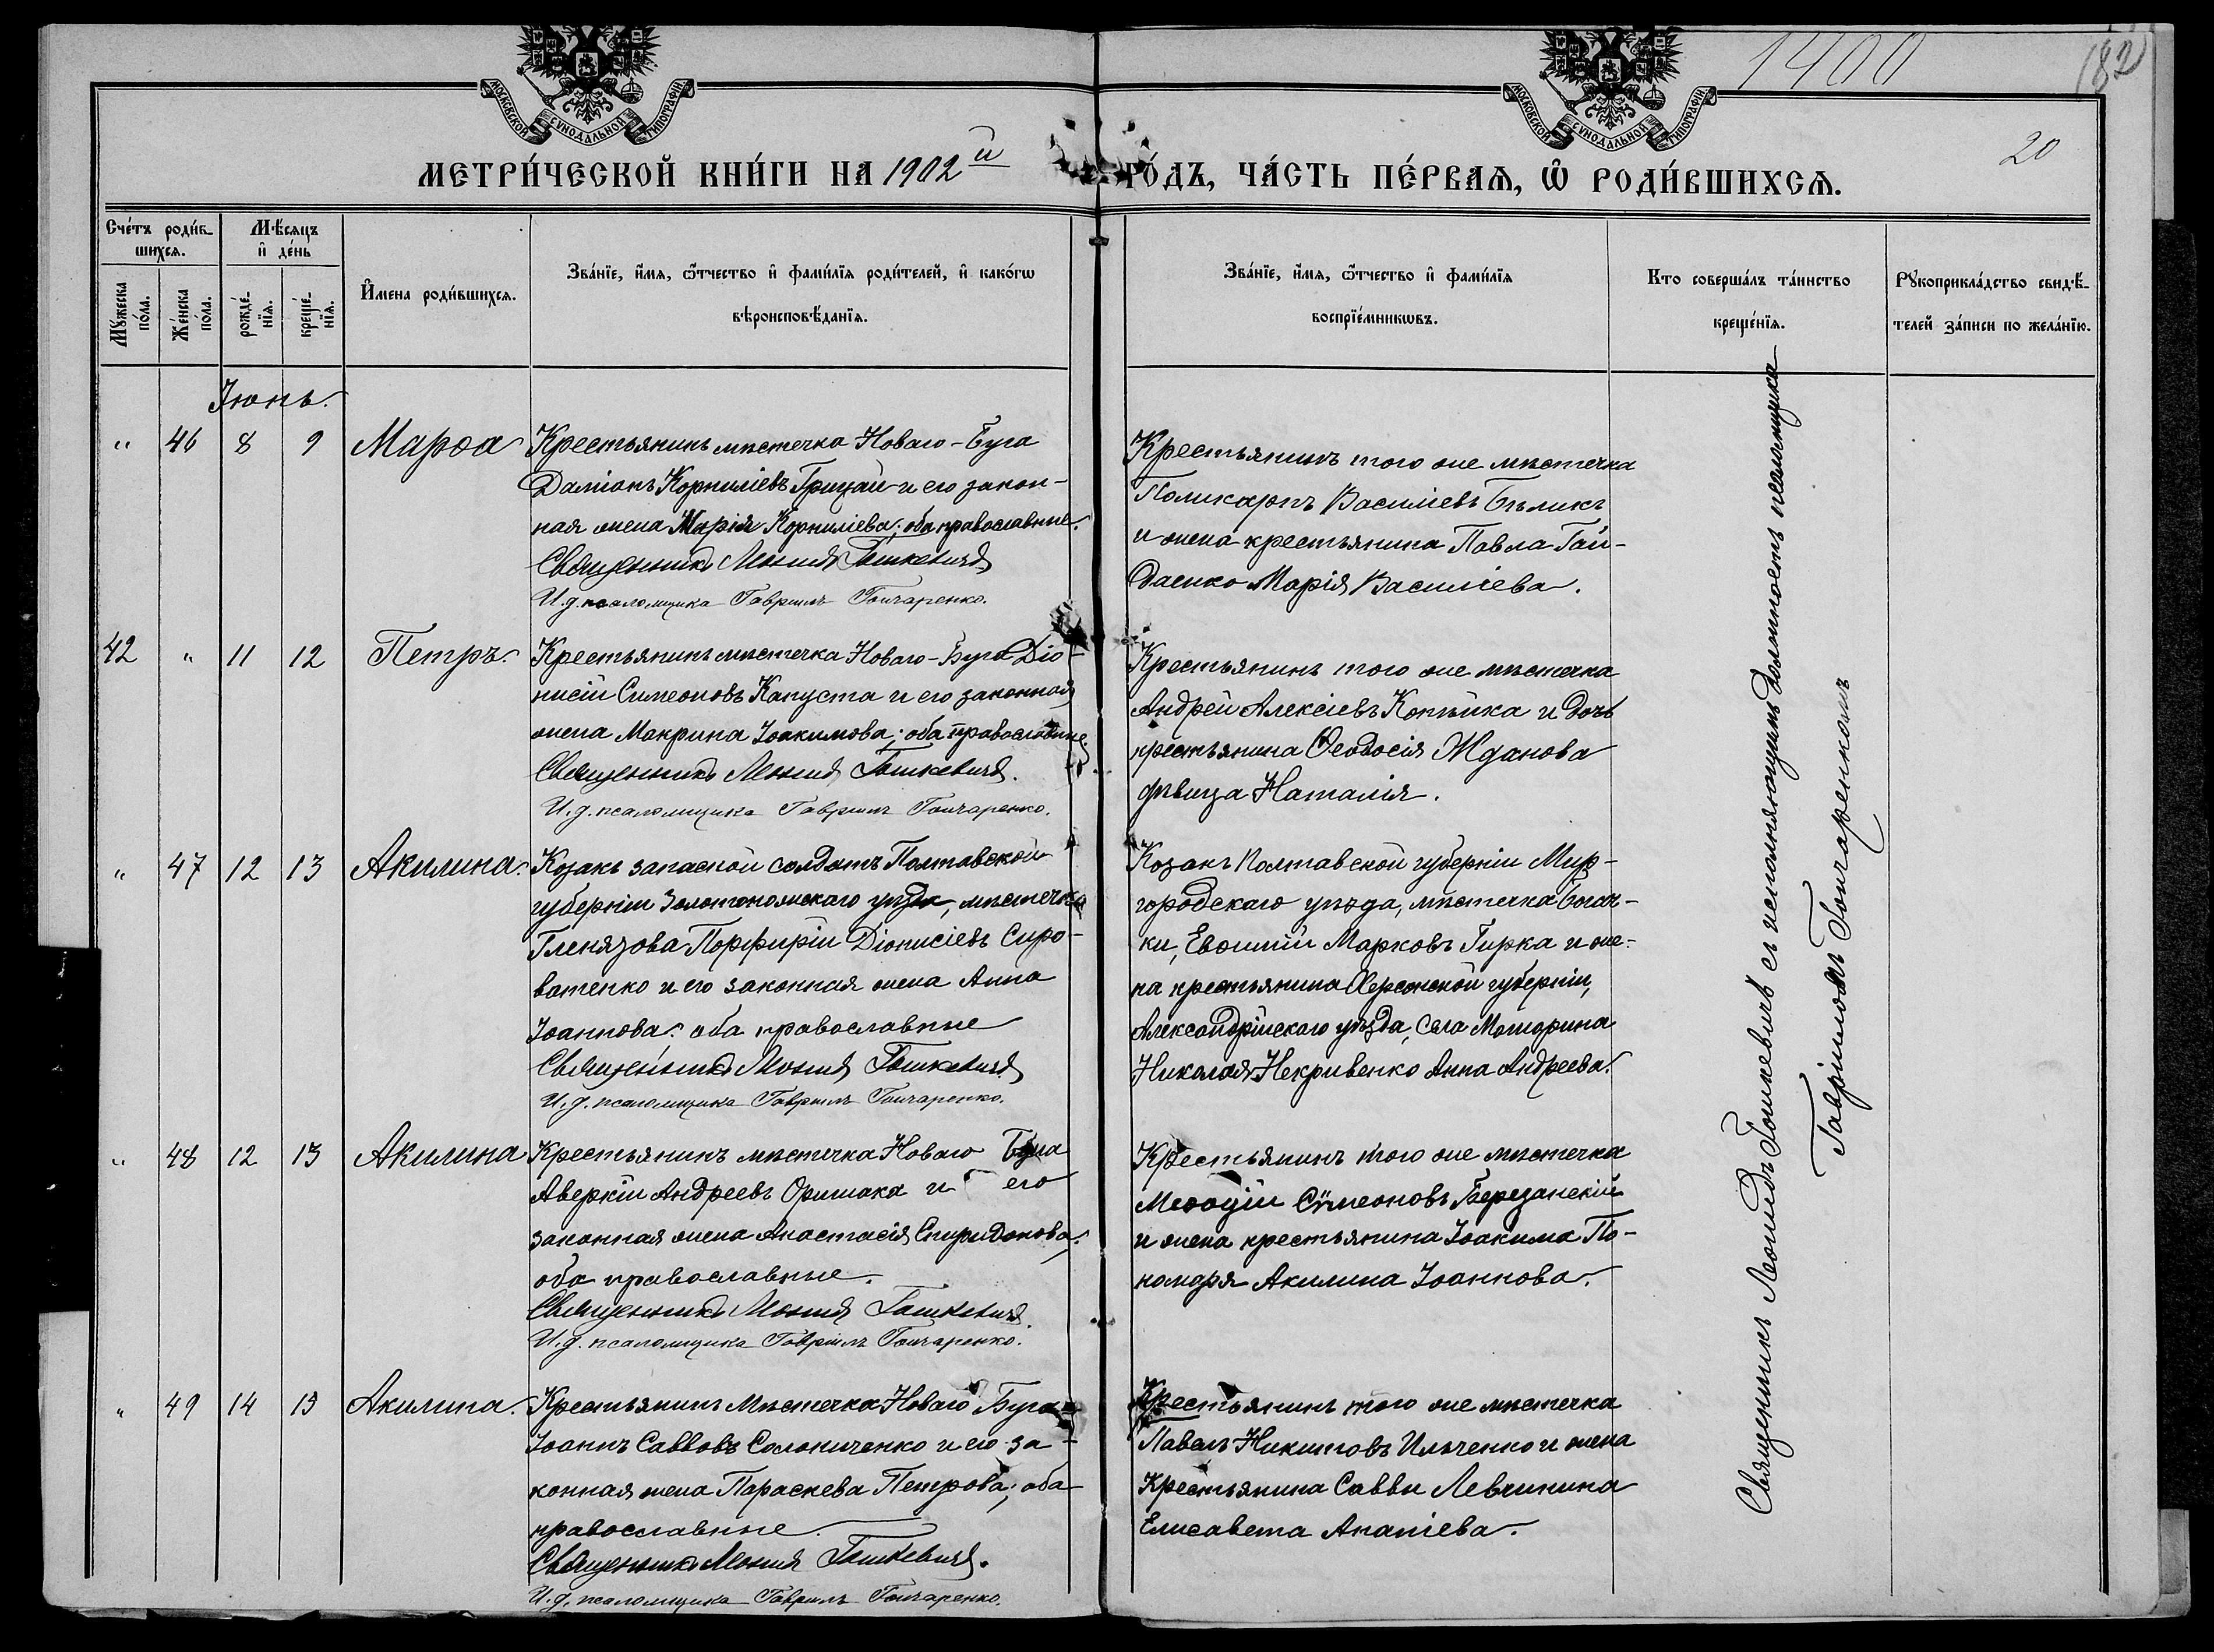 1400
182
20
МОСКОВСКОЙ СѴНОДАЛЬНОЙ ТИПОГРАФІИ
МОСКОВСКОЙ СѴНОДАЛЬНОЙ ТИПОГРАФІИ
МЕТРИ́ЧЕСКОЙ КНИ́ГИ НА 1902й ГО́ДЪ, ЧА́СТЬ ПЕ́РВАЯ, Ѡ РОДИ́ВШИХСЯ.
Сче́тъ роди́в-
шихся.
Мѣ́сяцъ
и де́нь
Мꙋ́жеска по́ла.
Же́нска по́ла.
рожде́-
нїя.
креще́-
нїя.
И́мена роди́вшихся.
Зва́нїе, и́мя, ѻ́тчество и фами́лїя роди́телей, и како́гѡ
вѣроисповѣ́данїя.
Зва́нїе, и́мя, ѻ́тчество и фами́лїя
воспрїе́мникѡвъ.
Кто соверша́лъ та́инство
креще́нїя.
Рꙋкоприкла́дство свидѣ́-
телей за́писи по жела́нїю.
Іюнь.
" 46 8 9 Марѳа
Крестьянинъ мѣстечка Новаго-Буга
Даміанъ Корниліевъ Грицай и его закон-
ная жена Марія Корниліева; оба православные.
Священникъ Леонидъ Гошкевичъ
И.д. псаломщика Гавріилъ Гончаренко.
Крестьянинъ того же мѣстечка
Поликарпъ Василіевъ Бѣликъ
и жена крестьянина Павла Гай-
даенко Марія Василіева.
42 " 11 12 Петръ.
Крестьянинъ мѣстечка Новаго-Буга Діо-
нисій Симеоновъ Капуста и его законная
жена Макрина Іоакимова; оба православные.
Священникъ Леонидъ Гошкевичъ.
И.д. псаломщика Гавріилъ Гончаренко.
Крестьянинъ того же мѣстечка
Андрей Алексіевъ Копѣйка и дочь
крестьянина Ѳеодосія Жданова
дѣвица Наталія.
" 47 12 13 Акилина.
Козакъ запасной солдатъ Полтавской
губерніи Золотоношскаго уѣзда, мѣстечка
Гленязова Порфирій Діонисіевъ Сиро-
ватенко и его законная жена Анна
Іоаннова: оба православные
Священникъ Леонидъ Гошкевичъ
И.д. псаломщика Гавріилъ Гончаренко.
Козакъ Полтавской губерніи Мир-
городскаго уѣзда, мѣстечка Богач-
ки, Евѳимій Марковъ Гирка и же-
на крестьянина Херсонской губерніи,
Александрійскаго уѣзда, села Мошорина
Николая Некривенко Анна Андреева.
" 48 12 13 Акилина
Крестьянинъ мѣстечка Новаго Буга
Аверкій Андреевъ Оришака и его
законная жена Анастасія Спиридонова;
оба православные.
Священникъ Леонидъ Гошкевичъ.
И.д. псаломщика Гавріилъ Гончаренко.
Крестьянинъ того же мѣстечка
Меѳодій Сѵмеоновъ Березанскій
и жена крестьянина Іоакима По-
номаря Акилина Іоаннова.
" 49 14 15 Акилина.
Крестьянинъ Мѣстечка Новаго Буга
Іоаннъ Саввовъ Солониченко и его за-
конная жена Параскева Петрова; оба
православные.
Священникъ Леонидъ Гошкевичъ.
И.д. псаломщика Гавріилъ Гончаренко.
Крестьянинъ того же мѣстечка
Павелъ Никитовъ Ильченко и жена
Крестьянина Саввы Левчинина
Елисавета Ананіева.
Священникъ Леонидъ Гошкевичъ съ исполняющимъ должность псаломщика
Гавріиломъ Гончаренкомъ